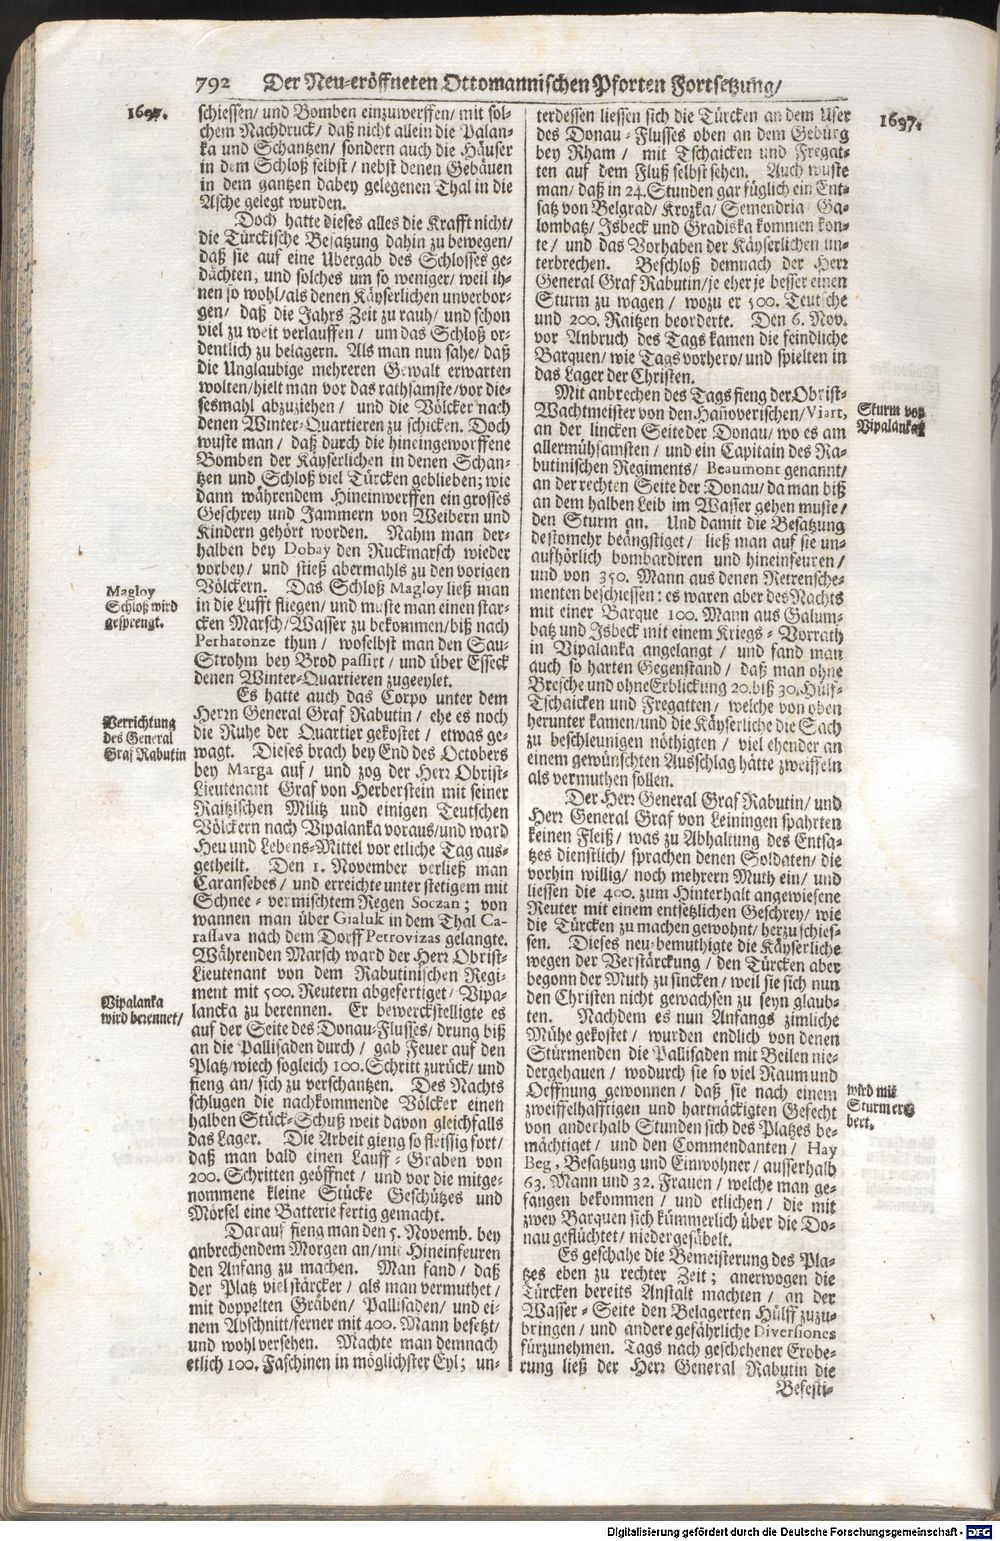 792 Der Neu-eröffneten Ottomannischen Pforten Fortsetzung/
1697.
schiessen/ und Bomben einzuwerffen/ mit sol-
chem Nachdruck/ daß nicht allein die Palan-
ka und Schantzen/ sondern auch die Häuser
in dem Schloß selbst/ nebst denen Gebäuen
in dem gantzen dabey gelegenen Thal in die
Asche gelegt wurden.
Doch hatte dieses alles die Krafft nicht/
die Türckische Besatzung dahin zu bewegen/
daß sie auf eine Ubergab des Schlosses ge-
dächten, und solches um so weniger/ weil ih-
nen so wohl/ als denen Käyserlichen unverbor-
gen/ daß die Jahrs Zeit zu rauh/ und schon
viel zu weit verlauffen/ um das Schloß or-
dentlich zu belagern. Als man nun sahe/ daß
die Unglaubige mehreren Gewalt erwarten
wolten/ hielt man vor das rathsamste/ vor die-
sesmahl abzuziehen/ und die Völcker nach
denen Winter-Quartieren zu schicken. Doch
wuste man/ daß durch die hineingeworffene
Bomben der Käyserlichen in denen Schan-
tzen und Schloß viel Türcken geblieben; wie
dann währendem Hineinwerffen ein grosses
Geschrey und Jammern von Weibern und
Kindern gehört worden. Nahm man der-
halben bey Dobay den Ruckmarsch wieder
vorbey/ und stieß abermahls zu den vorigen
Völckern. Das Schloß Magloy ließ man
in die Lufft fliegen/ und muste man einen star-
cken Marsch/ Wasser zu bekommen/ biß nach
Perhatonze thun/ woselbst man den Sau-
Strohm bey Brod passirt/ und über Esseck
denen Winter-Quartieren zugeeylet.
Magloy
Schloß wird
gesprengt.
Es hatte auch das Corpo unter dem
Herrn General Graf Rabutin/ ehe es noch
die Ruhe der Quartier gekostet/ etwas ge-
wagt. Dieses brach bey End des Octobers
bey Marga auf/ und zog der Herr Obrist-
Lieutenant Graf von Herberstein mit seiner
Raitzischen Militz und einigen Teutschen
Völckern nach Vipalanka voraus/ und ward
Heu und Lebens-Mittel vor etliche Tag aus-
getheilt. Den 1. November verließ man
Caransebes/ und erreichte unter stetigem mit
Schnee-vermischtem Regen Soczan; von
wannen man über Gialuk in dem Thal Ca-
raslava nach dem Dorff Petrovizas gelangte.
Währenden Marsch ward der Herr Obrist-
Lieutenant von dem Rabutinischen Regi-
ment mit 500. Reutern abgefertiget/ Vipa-
lancka zu berennen. Er bewerckstelligte es
auf der Seite des Donau-Flusses/ drung biß
an die Pallisaden durch/ gab Feuer auf den
Platz/ wiech sogleich 100. Schritt zurück/ und
fieng an/ sich zu verschantzen. Des Nachts
schlugen die nachkommende Völcker einen
halben Stück-Schuß weit davon gleichfalls
das Lager. Die Arbeit gieng so fleissig fort/
daß man bald einen Lauff-Graben von
200. Schritten geöffnet/ und vor die mitge-
nommene kleine Stücke Geschützes und
Mörsel eine Batterie fertig gemacht.
Verrichtung
des General
Graf Rabutin
Vipalanka
wird berennet/
Darauf fieng man den 5. Novemb. bey
anbrechendem Morgen an/ mit Hineinfeuren
den Anfang zu machen. Man fand/ daß
der Platz viel stärcker/ als man vermuthet/
mit doppelten Gräben/ Pallisaden/ und ei-
nem Abschnitt/ ferner mit 400. Mann besetzt/
und wohl versehen. Machte man demnach
etlich 100. Faschinen in möglichster Eyl; un-
1697.
terdessen liessen sich die Türcken an dem Ufer
des Donau-Flusses oben an dem Gebürg
bey Rham/ mit Tschaicken und Fregat-
ten auf dem Fluß selbst sehen. Auch wuste
man/ daß in 24. Stunden gar füglich ein Ent-
satz von Belgrad/ Krozka/ Semendria/ Ga-
lombatz/ Isbeck und Gradiska kommen kon-
te/ und das Vorhaben der Käyserlichen un-
terbrechen. Beschloß demnach der Herr
General Graf Rabutin/ je eher je besser einen
Sturm zu wagen/ wozu er 500. Teutsche
und 200. Raitzen beorderte. Den 6. Nov.
vor Anbruch des Tags kamen die feindliche
Barquen/ wie Tags vorhero/ und spielten in
das Lager der Christen.
Mit anbrechen des Tags fieng der Obrist-
Wachtmeister von den Hañoverischen/ Viart,
an der lincken Seite der Donau/ wo es am
allermühsamsten/ und ein Capitain des Ra-
butinischen Regiments/ Beaumont genannt/
an der rechten Seite der Donau/ da man biß
an dem halben Leib im Wasser gehen muste/
den Sturm an. Und damit die Besatzung
destomehr beängstiget/ ließ man auf sie un-
aufhörlich bombardiren und hineinfeuren/
und von 350. Mann aus denen Retrensche-
menten beschiessen: es waren aber des Nachts
mit einer Barque 100. Mann aus Galum-
batz und Isbeck mit einem Kriegs-Vorrath
in Vipalanka angelangt/ und fand man
auch so harten Gegenstand/ daß man ohne
Bresche und ohne Erblickung 20. biß 30. Hülf-
Tschaicken und Fregatten/ welche von oben
herunter kamen/ und die Käyserliche die Sach
zu beschleunigen nöthigten/ viel ehender an
einem gewünschten Ausschlag hätte zweiffeln
als vermuthen sollen.
Sturm vor
Vipalanka
Der Herr General Graf Rabutin/ und
Herr General Graf von Leiningen spahrten
keinen Fleiß/ was zu Abhaltung des Entsa-
tzes dienstlich/ sprachen denen Soldaten/ die
vorhin willig/ noch mehrern Muth ein/ und
liessen die 400. zum Hinterhalt angewiesene
Reuter mit einem entsetzlichen Geschrey/ wie
die Türcken zu machen gewohnt/ herzu schies-
sen. Dieses neu-bemuthigte die Käyserliche
wegen der Verstärckung/ den Türcken aber
begonn der Muth zu sincken/ weil sie sich nun
den Christen nicht gewachsen zu seyn glaub-
ten. Nachdem es nun Anfangs zimliche
Mühe gekostet/ wurden endlich von denen
Stürmenden die Pallisaden mit Beilen nie-
dergehauen/ wodurch sie so viel Raum und
Oeffnung gewonnen/ daß sie nach einem
zweiffelhafftigen und hartnäckigten Gefecht
von anderhalb Stunden sich des Platzes be-
mächtiget/ und den Commendanten/ Hay
Beg, Besatzung und Einwohner/ ausserhalb
63. Mann und 32. Frauen/ welche man ge-
fangen bekommen/ und etlichen/ die mit
zwey Barquen sich kümmerlich über die Do-
nau geflüchtet/ niedergesäbelt.
wird mit
Sturm er
bert.
Es geschahe die Bemeisterung des Pla-
tzes eben zu rechter Zeit; anerwogen die
Türcken bereits Anstalt machten/ an der
Wasser-Seite den Belagerten Hülff zuzu-
bringen/ und andere gefährliche Diversiones
fürzunehmen. Tags nach geschehener Erobe-
rung ließ der Herr General Rabutin die
Befesti-
Digitalisierung gefördert durch die Deutsche Forschungsgemeinschaft - DFG